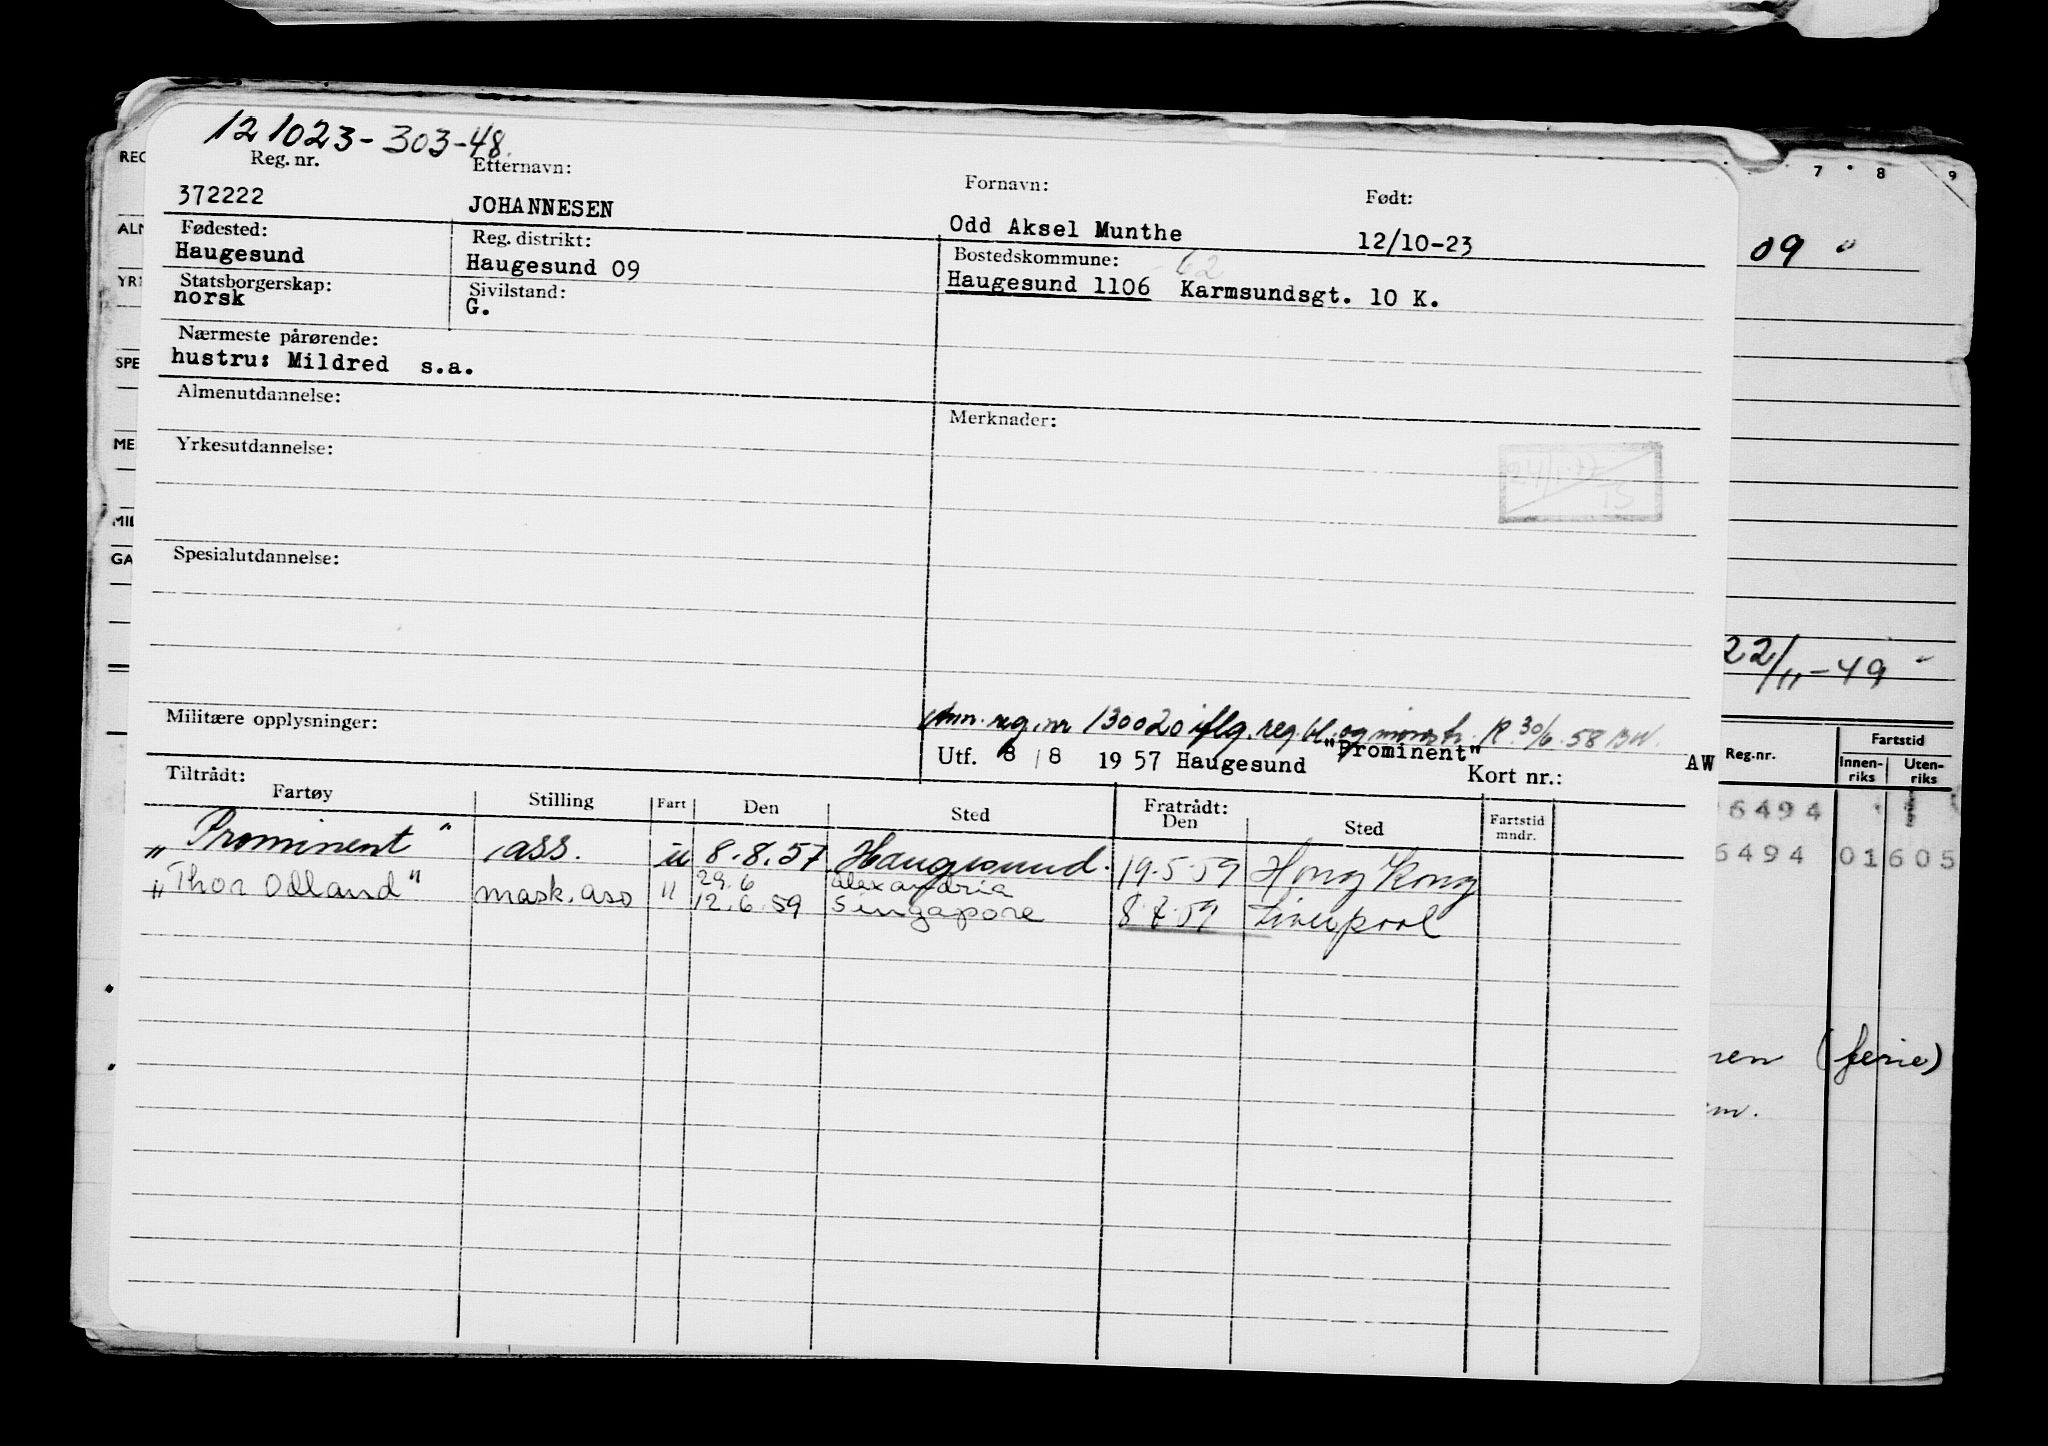 121023-303-48.
Reg. nr. Etternavn: Fornavn: Født:
372222 JOHANNESEN Odd Aksel Munthe 12/10-23
Fødested: Reg. distrikt: Bostedskommune: 62
Haugesund Haugesund 09 Haugesund 1106 Karmsundsgt. 10 K.
Statsborgerskap: Sivilstand:
norsk G.
Nærmeste pårørende:
hustru: Mildred s.a.
Almenutdannelse: Merknader:
Yrkesutdannelse:
Spesialutdannelse:
Militære opplysninger:
Ann. reg. nr 130020 iflg. reg. bl. og mønstr. R. 30/6-58 BW.
Utf. 8/8 1957 Haugesund "Prominent" AW
Kort nr.:
Tiltrådt: Fratrådt:
Fartøy Stilling Fart Den Sted Den Sted Fartstid mndr.
"Prominent" ass. u 8.8.57 Haugesund. 19.5.59 Hong Kong
29.6 Alexandria
"Thor Odland" mask. ass " 12.6.59 Singapore 8.7.59 Liverpool
REG
ALM
YRK
SPE
ME
MIL
GA
7 8 9
09
22/11-49
Reg.nr. Fartstid
Innen-riks Uten-riks
6494
6494 01 605
ren (ferie)
em.